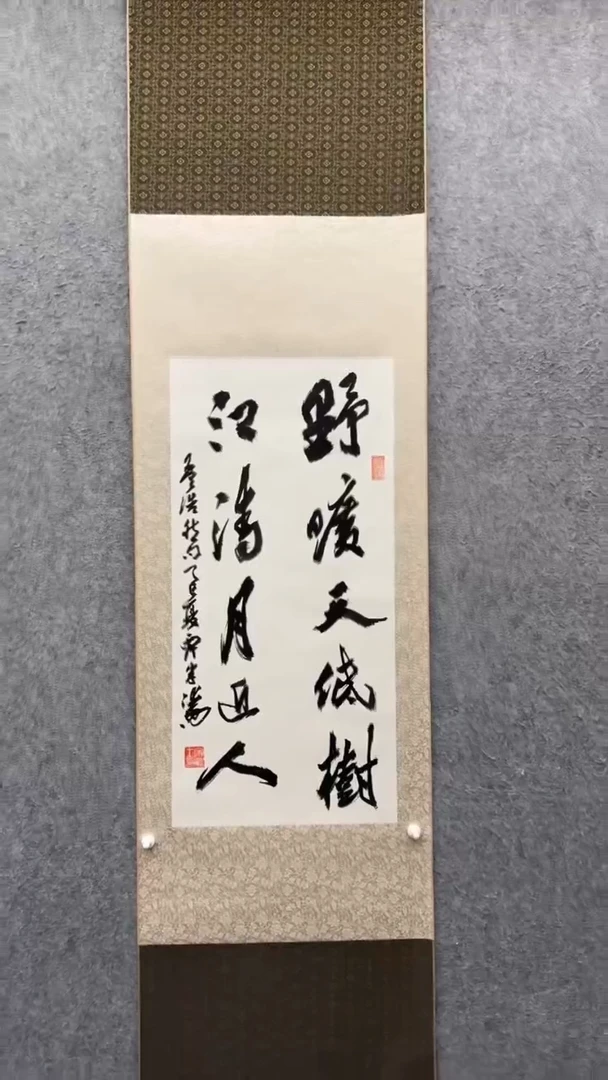 野曠天低樹
江清月近人
孟浩然句 乙巳夏